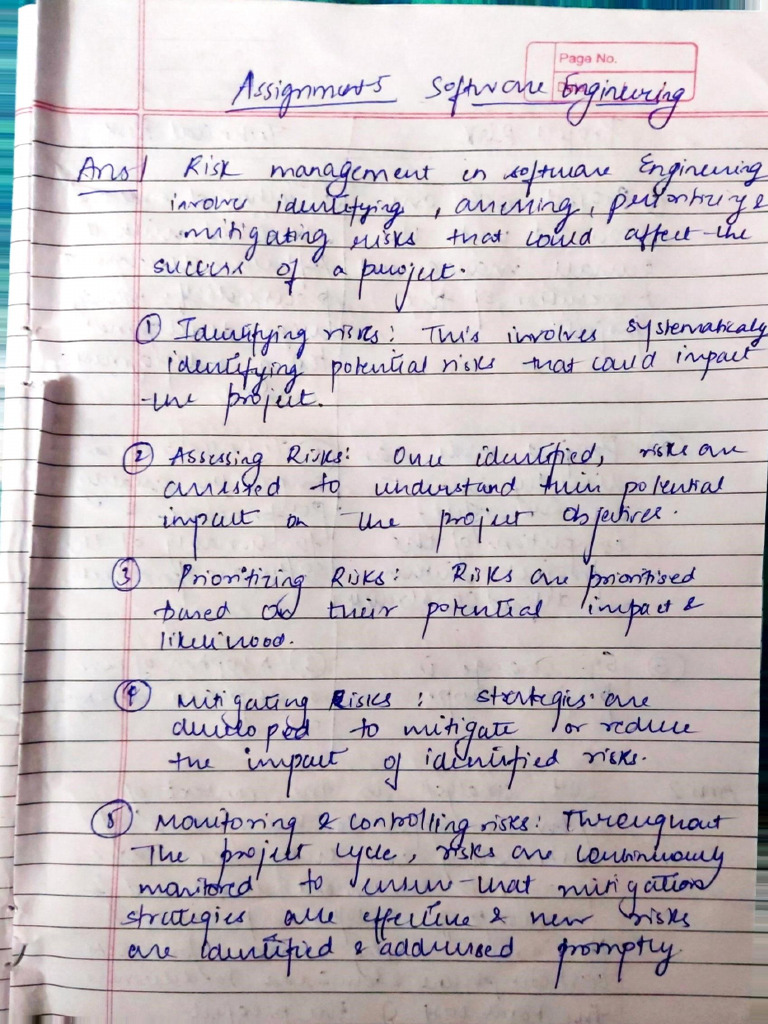 Page No.
Assignment 5 Software Engineering
Ans 1 Risk management in software Engineering
involve identifying, assessing, prioritizing &
mitigating risks that could affect the
success of a project.
① Identifying risks: This involves systematicaly
identifying potential risks that could impact
the project.
② Assessing Risks: Once identified, risks are
assessed to understand their potential
impact on the project objectives.
③ Prioritizing Risks: Risks are prioritised
based on their potential impact &
likelihood.
④ Mitigating Risks: strategies are
developed to mitigate or reduce
the impact of identified risks.
⑤ Monitoring & controlling risks: Throughout
The project cycle, risks are continuously
monitored to ensure that mitigation
strategies are effective & new risks
are identified & addressed promptly